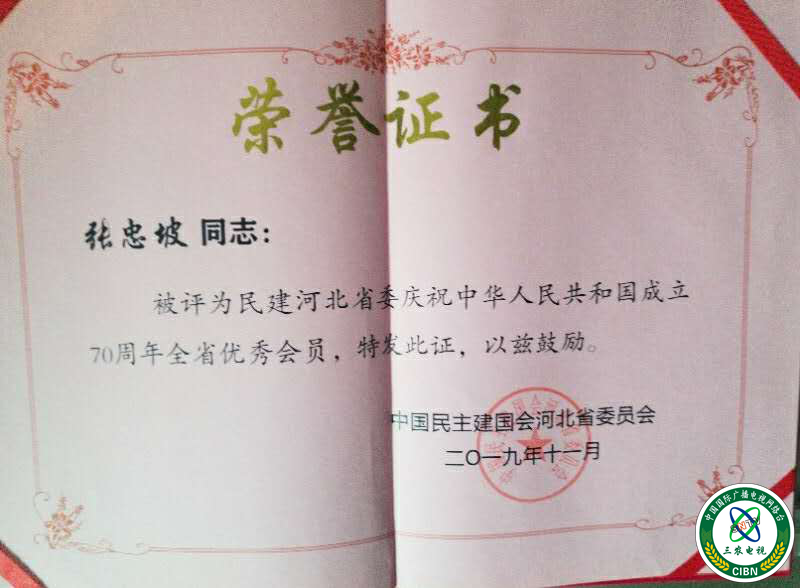 荣誉证书
张忠坡 同志：
被评为民建河北省委庆祝中华人民共和国成立
70周年全省优秀会员，特发此证，以兹鼓励。
中国民主建国会河北省委员会
二〇一九年十一月
中国国际广播电视网络台
三农电视
CIBN